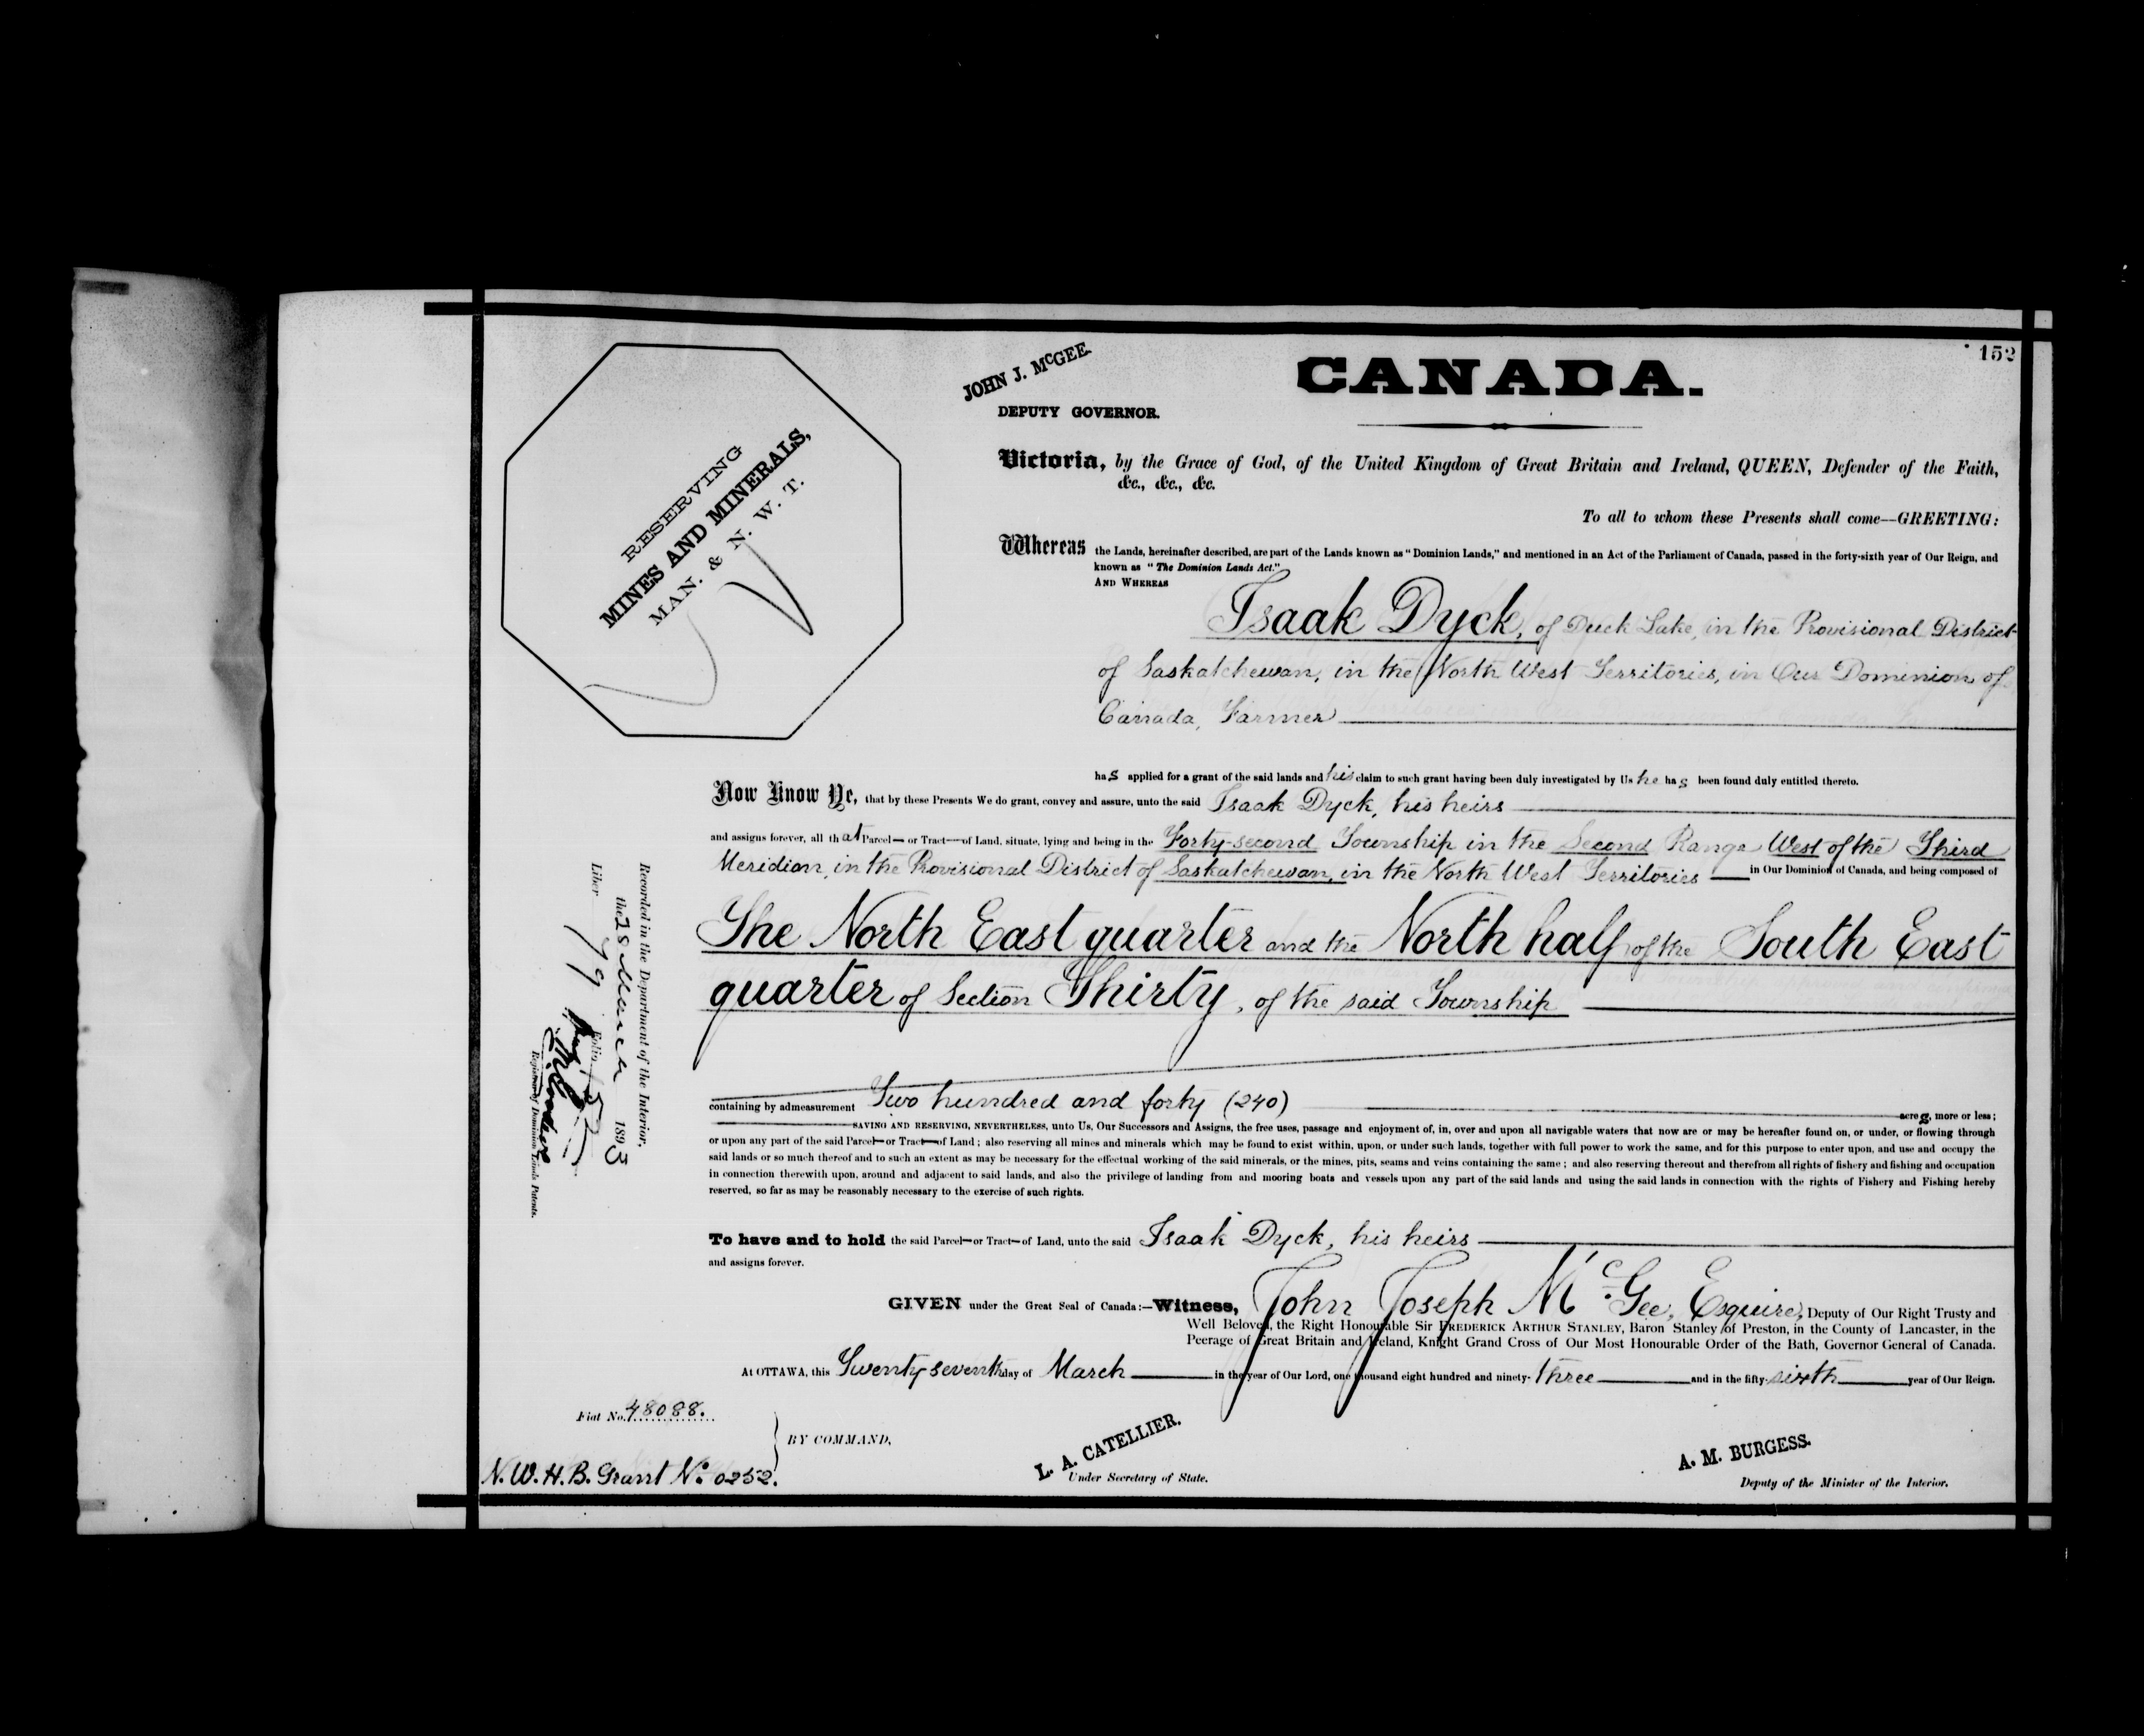 152
JOHN J. McGEE.
DEPUTY GOVERNOR.
CANADA.
RESERVING
MINES AND MINERALS,
MAN. & N. W. T.
Victoria, by the Grace of God, of the United Kingdom of Great Britain and Ireland, QUEEN, Defender of the Faith,
&c., &c., &c.
To all to whom these Presents shall come--GREETING:
Whereas the Lands, hereinafter described, are part of the Lands known as "Dominion Lands," and mentioned in an Act of the Parliament of Canada, passed in the forty-sixth year of Our Reign, and
known as "The Dominion Lands Act."
AND WHEREAS
Isaak Dyck, of Duck Lake, in the Provisional District
of Saskatchewan, in the North West Territories, in Our Dominion of
Canada, Farmer
has applied for a grant of the said lands and his claim to such grant having been duly investigated by Us he has been found duly entitled thereto.
Now Know Ye, that by these Presents We do grant, convey and assure, unto the said Isaak Dyck, his heirs
and assigns forever, all that Parcel— or Tract—of Land, situate, lying and being in the Forty-second Township in the Second Range West of the Third
Meridian, in the Provisional District of Saskatchewan, in the North West Territories — in Our Dominion of Canada, and being composed of
The North East quarter and the North half of the South East
quarter of Section Thirty, of the said Township
containing by admeasurement Two hundred and forty (240) acres, more or less;
SAVING AND RESERVING, NEVERTHELESS, unto Us, Our Successors and Assigns, the free uses, passage and enjoyment of, in, over and upon all navigable waters that now are or may be hereafter found on, or under, or flowing through
or upon any part of the said Parcel—or Tract—of Land; also reserving all mines and minerals which may be found to exist within, upon, or under such lands, together with full power to work the same, and for this purpose to enter upon, and use and occupy the
said lands or so much thereof and to such an extent as may be necessary for the effectual working of the said minerals, or the mines, pits, seams and veins containing the same; and also reserving thereout and therefrom all rights of fishery and fishing and occupation
in connection therewith upon, around and adjacent to said lands, and also the privilege of landing from and mooring boats and vessels upon any part of the said lands and using the said lands in connection with the rights of Fishery and Fishing hereby
reserved, so far as may be reasonably necessary to the exercise of such rights.
To have and to hold the said Parcel—or Tract—of Land, unto the said Isaak Dyck, his heirs
and assigns forever.
GIVEN under the Great Seal of Canada:—Witness, John Joseph McGee, Esquire, Deputy of Our Right Trusty and
Well Beloved, the Right Honourable Sir FREDERICK ARTHUR STANLEY, Baron Stanley of Preston, in the County of Lancaster, in the
Peerage of Great Britain and Ireland, Knight Grand Cross of Our Most Honourable Order of the Bath, Governor General of Canada.
At OTTAWA, this Twenty seventh day of March in the year of Our Lord, one thousand eight hundred and ninety-three and in the fifty-sixth year of Our Reign.
Fiat No. 48088.
BY COMMAND,
N.W.H.B. Grant No. 0252.
L. A. CATELLIER.
Under Secretary of State.
A. M. BURGESS.
Deputy of the Minister of the Interior.
Recorded in the Department of the Interior.
the 28 March 1893
Liber 79 Folio 152
Registrar of Dominion Lands Patents.